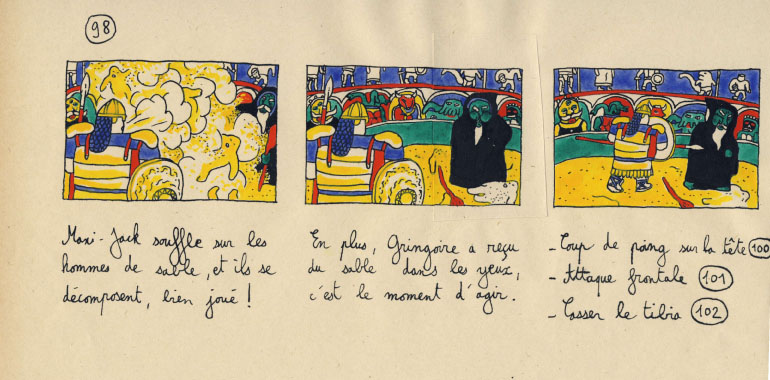 98
Maxi-Jack souffle sur les
hommes de sable, et ils se
décomposent, bien joué !
En plus, Gringoire a reçu
du sable dans les yeux,
c'est le moment d'agir.
- Coup de poing sur la tête 100
- Attaque frontale 101
- Casser le tibia 102